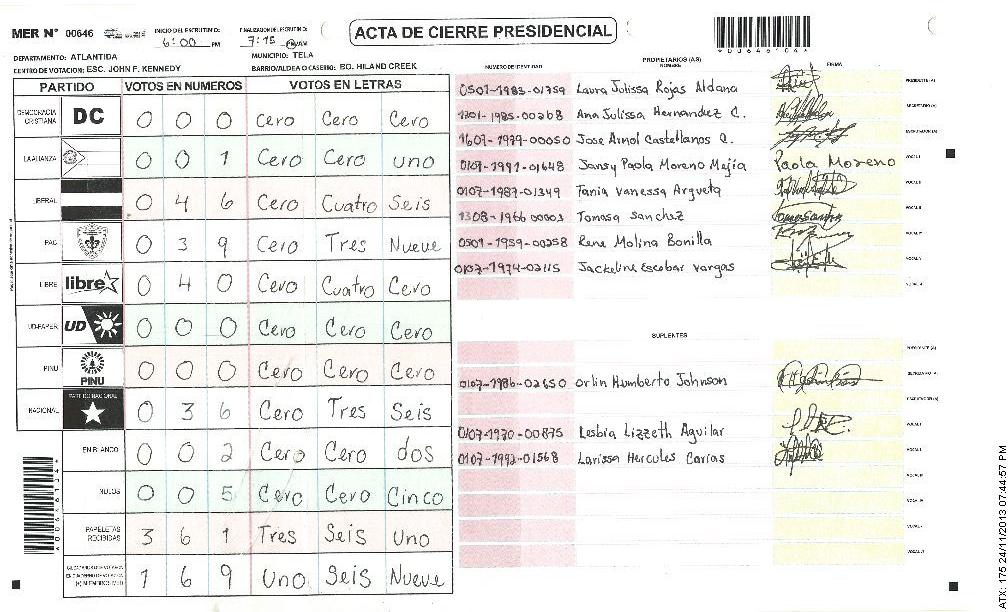 MER N° 00646
INICIO DEL ESCRUTINIO: 6:00 PM
FINALIZACION DE ESCRUTINIO: 7:15 PM
ACTA DE CIERRE PRESIDENCIAL
DEPARTAMENTO: ATLANTIDA
MUNICIPIO: TELA
CENTRO DE VOTACION: ESC. JOHN F. KENNEDY
BARRIO/ALDEA O CASERIO: BO. HILAND CREEK
PARTIDO VOTOS EN NUMEROS VOTOS EN LETRAS
DEMOCRACIA CRISTIANA DC 0 0 0 Cero Cero Cero
LA ALIANZA 0 0 1 Cero Cero uno
LIBERAL 0 4 6 Cero Cuatro Seis
PAC 0 3 9 Cero Tres Nueve
LIBRE libre 0 4 0 Cero Cuatro Cero
UD-FAPER UD 0 0 0 Cero Cero Cero
PINU PINU 0 0 0 Cero Cero Cero
NACIONAL PARTIDO NACIONAL 0 3 6 Cero Tres Seis
EN BLANCO 0 0 2 Cero Cero dos
NULOS 0 0 5 Cero Cero Cinco
PAPELETAS RECIBIDAS 3 6 1 Tres Seis uno
1 6 9 Uno Seis Nueve
NUMERO DE IDENTIDAD
PROPIETARIOS (AS)
NOMBRE
FIRMA
0501-1983-01759 Laura Julissa Rojas Aldana PRESIDENTE (A)
1301-1985-00268 Ana Julissa Hernandez C. SECRETARIO (A)
1607-1979-00050 Jose Arnol Castellanos Q. ESCRUTADOR (A)
0109-1991-01648 Jansy Paola Moreno Mejía Paola Moreno VOCAL I
0107-1987-01349 Tania Vanessa Argueta VOCAL II
1308-1966-00003 Tomasa Sanchez VOCAL III
0501-1959-00258 Rene Molina Bonilla VOCAL IV
0107-1974-02115 Jackeline Escobar Vargas VOCAL V
SUPLENTES
PRESIDENTE (A)
0107-1986-02650 Orlin Humberto Johnson
ESCRUTADOR (A)
0107-1970-00875 Lesbia Lizzeth Aguilar VOCAL I
0107-1992-01568 Larissa Hercules Carias
ATX: 175 24/11/2013 07:44:57 PM